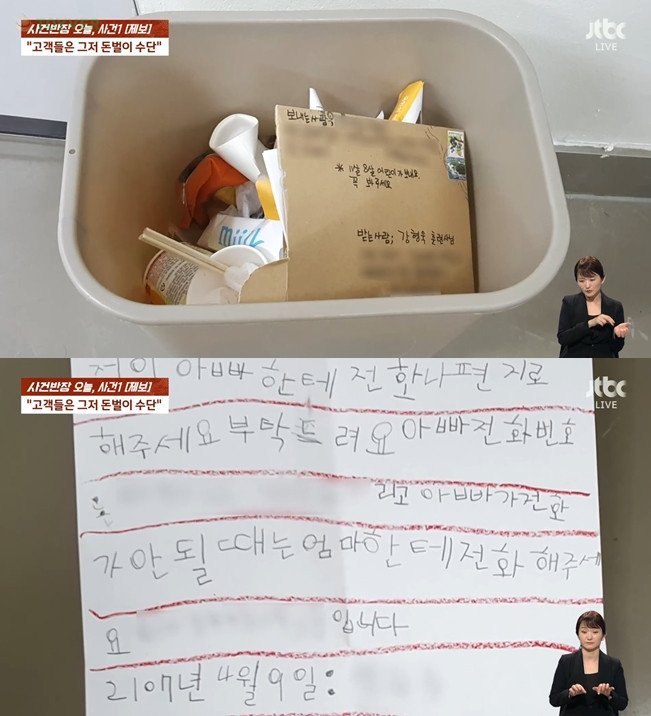 사건반장 오늘, 사건1 [제보]
"고객들은 그저 돈벌이 수단"
jtbc
LIVE
보내는사람
※ 11살 8살 어린이가 보내요.
꼭 봐주세요
받는사람; 강형욱 훈련사님
milk
사건반장 오늘, 사건1 [제보]
"고객들은 그저 돈벌이 수단"
jtbc
LIVE
저의 아빠한테 전화나편지로
해주세요 부탁드려요 아빠전화번호
는
리고 아빠가전화
가안될때는엄마한테전화해주세
요
입니다
2107년 4월 9일: